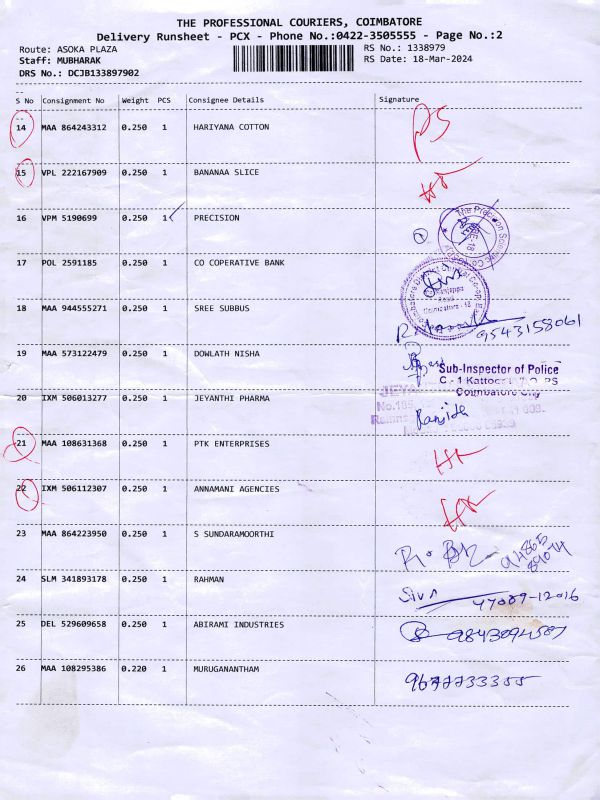 THE PROFESSIONAL COURIERS, COIMBATORE
Delivery Runsheet - PCX - Phone No.:0422-3505555 - Page No.:2
Route: ASOKA PLAZA RS No.: 1338979
Staff: MUBHARAK RS Date: 18-Mar-2024
DRS No.: DCJB133897902
S No Consignment No Weight PCS Consignee Details Signature
14 MAA 864243312 0.250 1 HARIYANA COTTON
15 VPL 222167909 0.250 1 BANANAA SLICE
16 VPM 5190699 0.250 1 PRECISION
17 POL 2591185 0.250 1 CO COPERATIVE BANK
18 MAA 944555271 0.250 1 SREE SUBBUS 9543158061
19 MAA 573122479 0.250 1 DOWLATH NISHA
Sub-Inspector of Police
Coimbatore City
20 IXM 506013277 0.250 1 JEYANTHI PHARMA Ranjith
21 MAA 108631368 0.250 1 PTK ENTERPRISES
22 IXM 506112307 0.250 1 ANNAMANI AGENCIES
23 MAA 864223950 0.250 1 S SUNDARAMOORTHI
24 SLM 341893178 0.250 1 RAHMAN Siva
25 DEL 529609658 0.250 1 ABIRAMI INDUSTRIES
26 MAA 108295386 0.220 1 MURUGANANTHAM